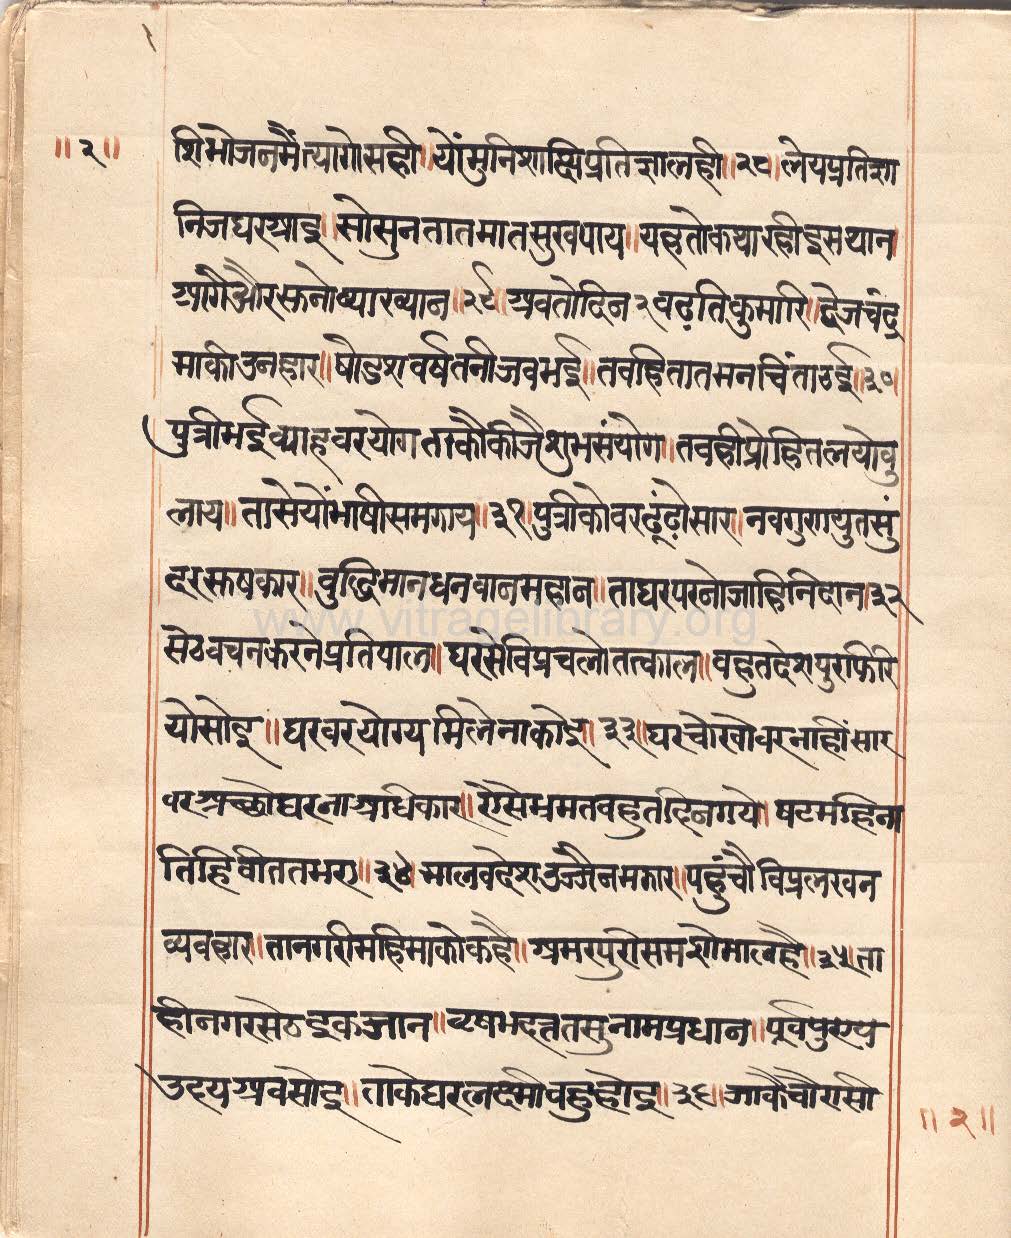 ॥२॥
शिभोजनमैंत्यागोसही॥यौंमुनिशाखिप्रतिज्ञालही॥२८॥लेयप्रतिज्ञा
निजघरआइ॥सोसुनतातमातसुखपाय॥यहतोकथारहीइसथान
आगैऔरसुनोव्याख्यान॥२९॥अवतोदिन२वढ़तिकुमारि॥द्वेजचंद्र
माकीउनहार॥षोडशवर्षतनीजवभई॥तवहितातमनचिंताठई॥३०॥
पुत्रीभईव्याहवरयोगताकौकीजैशुभसंयोग॥तवहीप्रोहितलयोवु
लाय॥तासेयोंभाषीसमगाय॥३१॥पुत्रीकोवरढूंढ़ोसार॥नवगुणयुतसुं
दरसुषकार॥वुद्धिमानधनवानमहान॥ताघरपरनोजाहिनिदान॥३२
सेठवचनकरनेप्रतिपाल॥घरसेविप्रचलोतत्काल॥वहुतदेशपुरफिरि
योसोइ॥घरवरयोग्यमिलेनाकोइ॥३३॥घरचोखोवरनाहींसार
वरअच्छोघरनाअधिकार॥ऐसेभ्रमतवहुतदिनगये॥षटमहिना
तिहिवीततभए॥३४॥मालवदेशउज्जैनमझार॥पहुंचौविप्रलखन
व्यवहार॥तानगरीमहिमाकोकहै॥अमरपुरीसमशोभालहै॥३५॥ता
हीनगरसेठइकजान॥वृषभदत्ततसुनामप्रधान॥पूर्वपुण्य
उदयअवसोइ॥ताकेघरलक्ष्मीवहुहोइ॥३६॥जाकैचौरासी
॥२॥
www.vitragelibrary.org